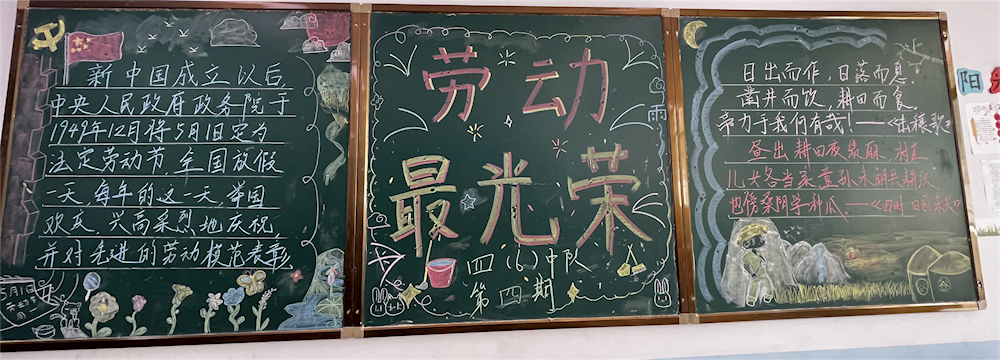 新中国成立以后,
中央人民政府政务院于
1949年12月将5月1日定为
法定劳动节,全国放假
一天,每年的这一天,举国
欢庆,兴高采烈地庆祝,
并对先进的劳动模范表彰
5月1日
劳动
最光荣
雨
四(6)中队
第四期
日出而作,日落而息,
凿井而饮,耕田而食,
帝力于我何有哉!——《击壤歌》
昼出耘田夜绩麻,村庄
儿女各当家,童孙未解共耕织
也傍桑阴学种瓜。——《四时田园杂兴》
阳光